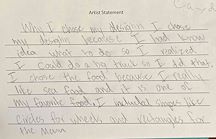 Artist Statement
Why I chose my design I chose
my design because I had know
idea what to do so I realized
I could do a big truck so I did that.
I chose the food because I really
like sea food and it is one of
my favorite food. I included shapes like
circles for wheels and rectangles for
the